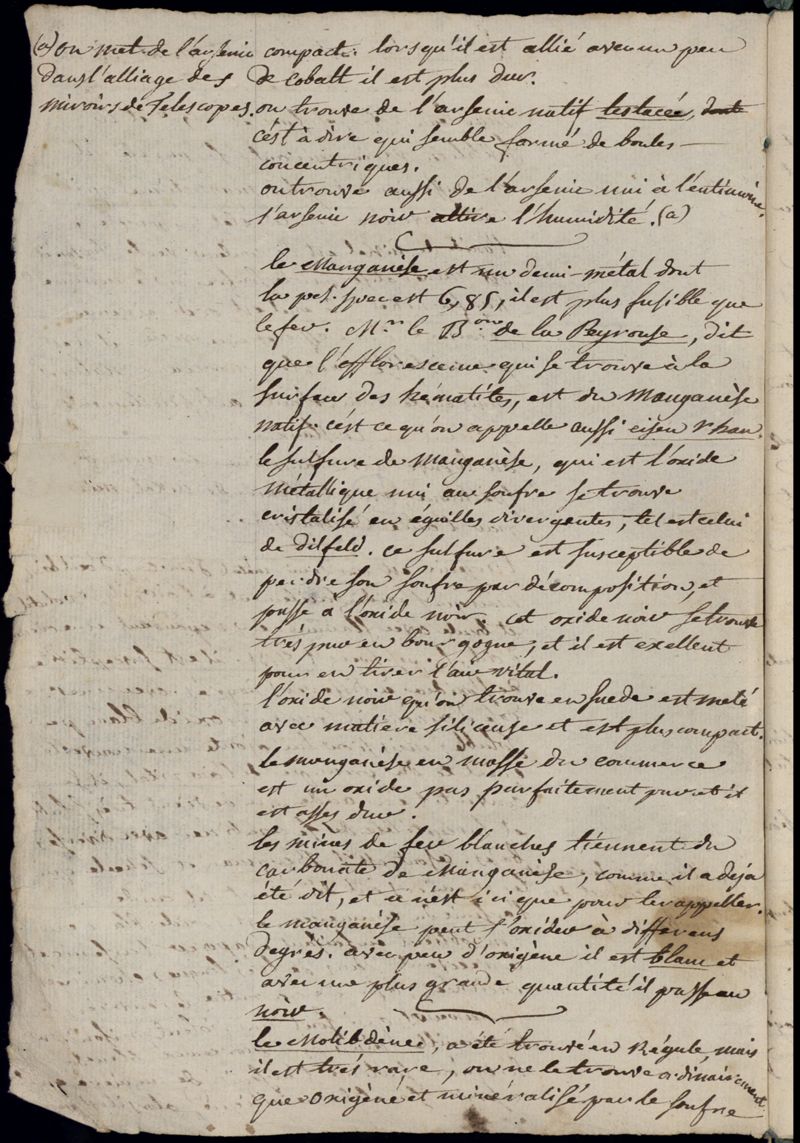 (a) on met de l'arsenic
dans l'alliage des
miroirs de Telescopes.
compact. lorsqu'il est allié avec un peu
de cobalt il est plus dur.
on trouve de l'arsenic natif testacée, dont
c'est à dire qui semble formé de boules
concentriques.
on trouve aussi de l'arsenic uni à l'entimoine.
l'arsenic noir attire l'humidité. (a)
le Manganèse est un demi-métal dont
la pes. spec est 6,85, il est plus fusible que
le fer. Mr. le Bon de la Peyrouse, dit
que l'efflorescence qui se trouve à la
surface des hématites, est du Manganèse
natif. c'est ce qu'on appelle aussi eisen rham.
le sulfure de Manganèse, qui est l'oxide
métallique uni au soufre se trouve
cristalisé en éguilles divergentes, tel est celui
de Dilfeld. ce sulfure est susceptible de
perdre son soufre par décomposition, et
passe à l'oxide noir. cet oxide noir se trouve
trés pur en bourgogne, et il est exellent
pour en tirer l'air vital.
l'oxide noir qu'on trouve en suede est melé
avec matiere siliceuse et est plus compact.
le manganèse en masse du commerce
est un oxide pas parfaitement pur et il
est asses dur.
les mines de fer blanches tiennent du
carbonate de Manganèse, comme il a deja
été dit, et ce n'est ici que pour le rappeller.
le manganèse peut s'oxider à differens
degrés. avec peu d'oxigène il est blanc et
avec une plus grande quantité il passe au
noir.
le Molibdène, a été trouvé en Régule, mais
il est trés rare, on ne le trouve ordinairement
que oxigéné et minéralisé par le soufre